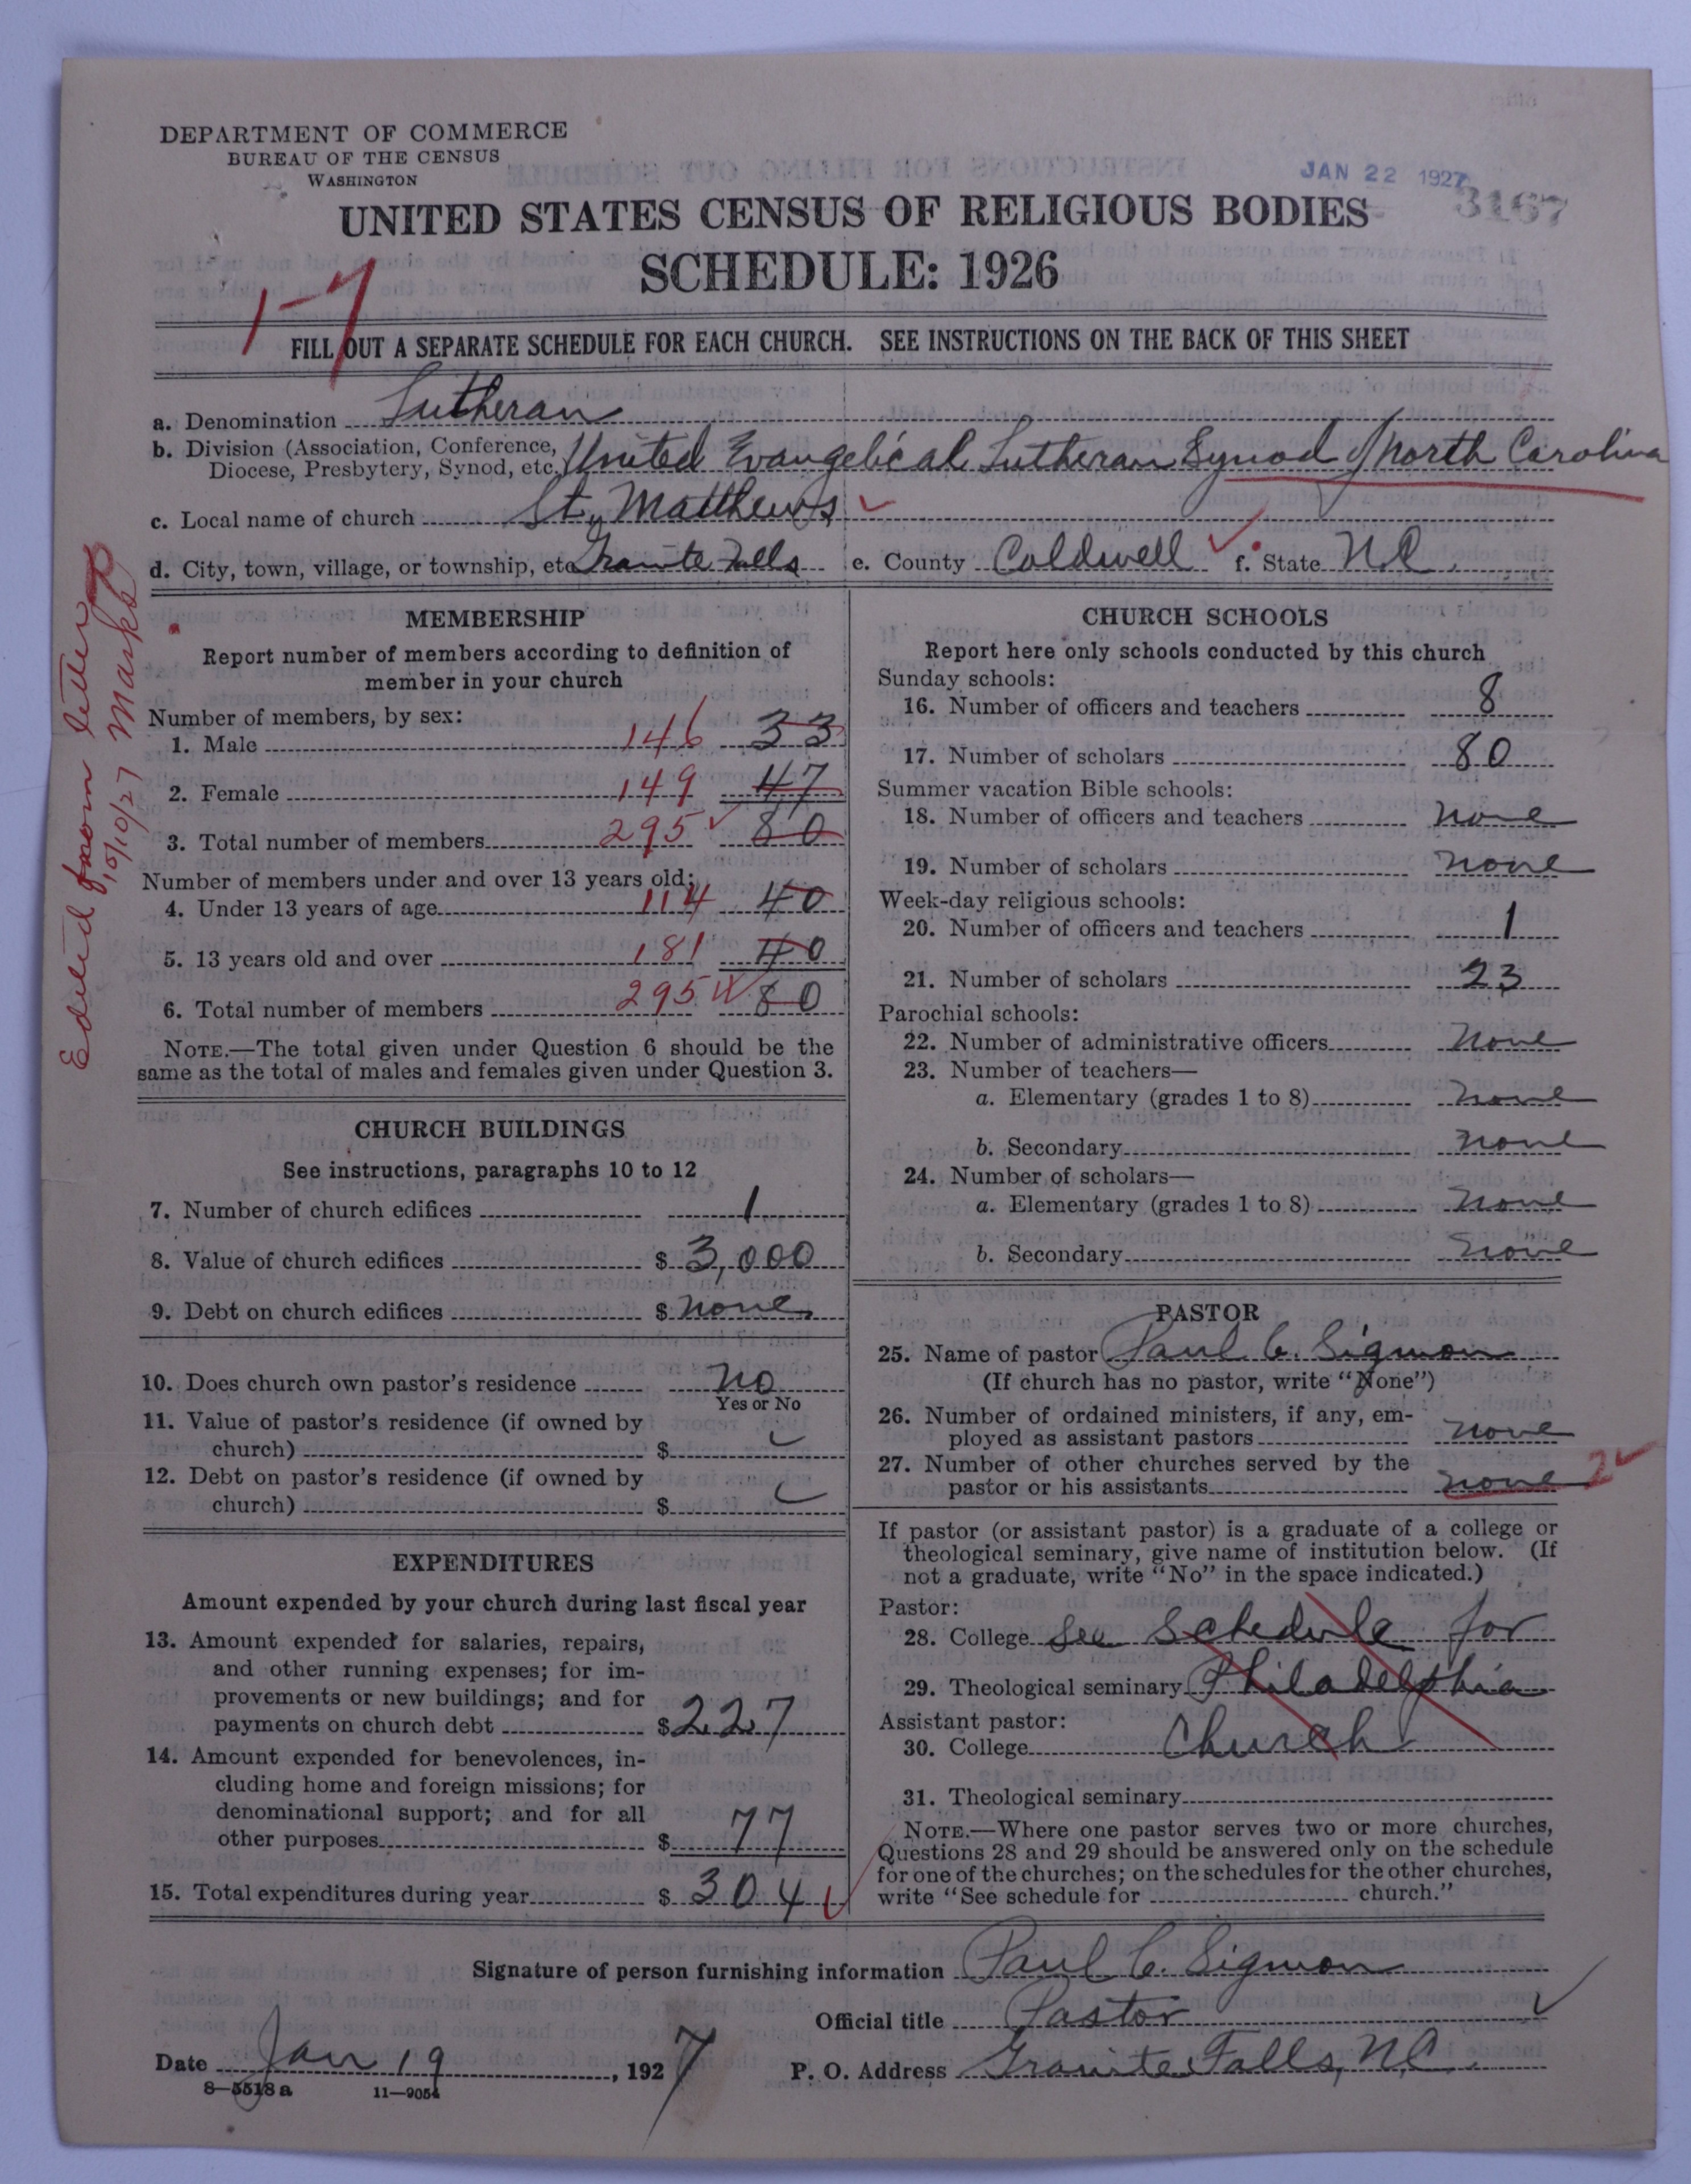 DEPARTMENT OF COMMERCE
BUREAU OF THE CENSUS
WASHINGTON
JAN 22 1927
3167
UNITED STATES CENSUS OF RELIGIOUS BODIES
SCHEDULE: 1926
1-7
FILL OUT A SEPARATE SCHEDULE FOR EACH CHURCH. SEE INSTRUCTIONS ON THE BACK OF THIS SHEET
a. Denomination Lutheran
b. Division (Association, Conference, Diocese, Presbytery, Synod, etc. United Evangelical Lutheran Synod of North Carolina
c. Local name of church St. Matthews
d. City, town, village, or township, etc Granite Falls e. County Caldwell f. State N.C.
Edited from letter
10/10/27 Marks
MEMBERSHIP
Report number of members according to definition of
member in your church
Number of members, by sex:
1. Male 146 33
2. Female 149 47
3. Total number of members 295 80
Number of members under and over 13 years old:
4. Under 13 years of age 114 40
5. 13 years old and over 181 40
6. Total number of members 295 80
NOTE.—The total given under Question 6 should be the
same as the total of males and females given under Question 3.
CHURCH BUILDINGS
See instructions, paragraphs 10 to 12
7. Number of church edifices 1
8. Value of church edifices $ 3,000
9. Debt on church edifices $ none
10. Does church own pastor's residence no
Yes or No
11. Value of pastor's residence (if owned by
church) $
12. Debt on pastor's residence (if owned by
church) $
EXPENDITURES
Amount expended by your church during last fiscal year
13. Amount expended for salaries, repairs,
and other running expenses; for im-
provements or new buildings; and for
payments on church debt $ 227
14. Amount expended for benevolences, in-
cluding home and foreign missions; for
denominational support; and for all
other purposes $ 77
15. Total expenditures during year $ 304
CHURCH SCHOOLS
Report here only schools conducted by this church
Sunday schools:
16. Number of officers and teachers 8
17. Number of scholars 80
Summer vacation Bible schools:
18. Number of officers and teachers none
19. Number of scholars none
Week-day religious schools:
20. Number of officers and teachers 1
21. Number of scholars 23
Parochial schools:
22. Number of administrative officers none
23. Number of teachers—
a. Elementary (grades 1 to 8) none
b. Secondary none
24. Number of scholars—
a. Elementary (grades 1 to 8) none
b. Secondary none
PASTOR
25. Name of pastor Paul C. Sigmon
(If church has no pastor, write "None")
26. Number of ordained ministers, if any, em-
ployed as assistant pastors none
27. Number of other churches served by the
pastor or his assistants none 2
If pastor (or assistant pastor) is a graduate of a college or
theological seminary, give name of institution below. (If
not a graduate, write "No" in the space indicated.)
Pastor:
28. College See Schedule for
29. Theological seminary Philadelphia
Assistant pastor:
30. College Church
31. Theological seminary
NOTE.—Where one pastor serves two or more churches,
Questions 28 and 29 should be answered only on the schedule
for one of the churches; on the schedules for the other churches,
write "See schedule for church."
Signature of person furnishing information Paul C. Sigmon
Official title Pastor
Date Jan 19, 1927 P. O. Address Granite Falls, N.C.
8—5518 a 11—9054